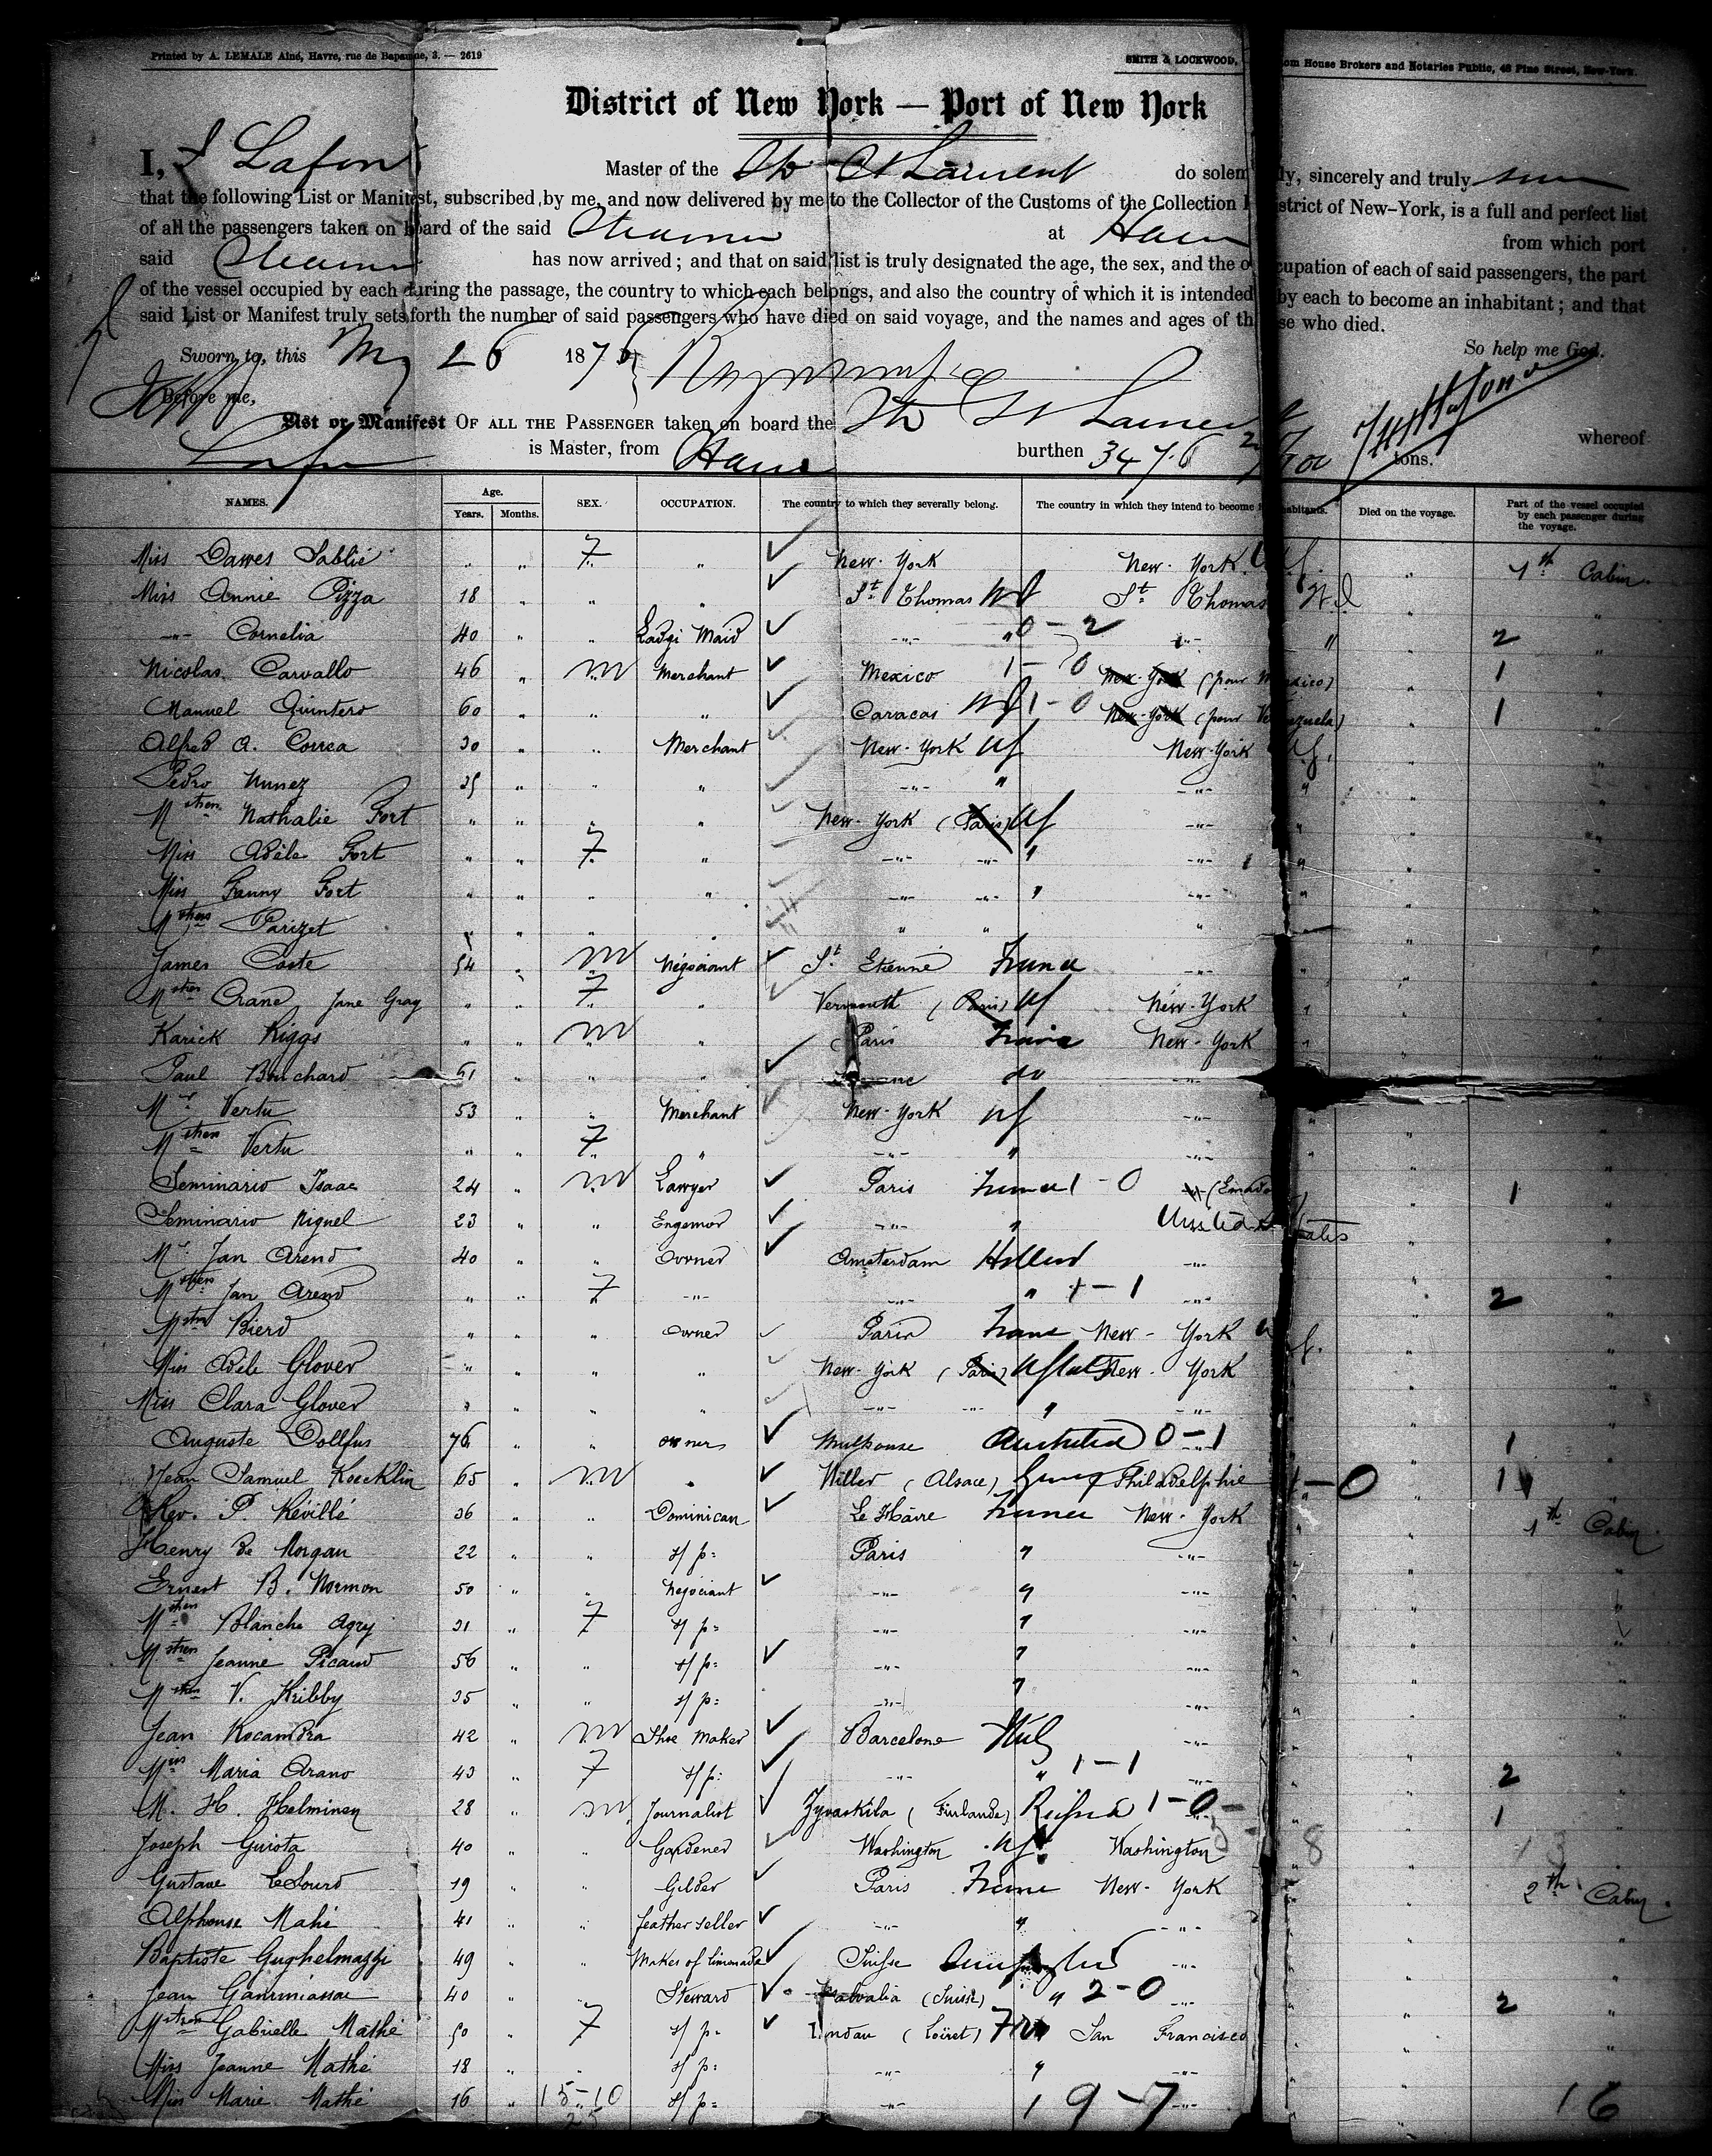 Printed by A. LEMALE Ainé, Havre, rue de Bapaume, 3. — 2619
SMITH & LOCKWOOD, om House Brokers and Notaries Public, 48 Pine Street, New-York.
District of New York — Port of New York
I, Lafon Master of the St Laurent do solem ly, sincerely and truly
that the following List or Manifest, subscribed by me, and now delivered by me to the Collector of the Customs of the Collection strict of New-York, is a full and perfect list
of all the passengers taken on board of the said Steamer at Havre from which port
said Steamer has now arrived; and that on said list is truly designated the age, the sex, and the o cupation of each of said passengers, the part
of the vessel occupied by each during the passage, the country to which each belongs, and also the country of which it is intended by each to become an inhabitant; and that
said List or Manifest truly sets forth the number of said passengers who have died on said voyage, and the names and ages of th se who died.
So help me God.
Sworn to, this May 26 1876
Before me,
List or Manifest OF ALL THE PASSENGER taken on board the St Laurent whereof
Lafon is Master, from Havre burthen 3476 tons.
NAMES. Age. Years. Months. SEX. OCCUPATION. The country to which they severally belong. The country in which they intend to become inhabitants. Died on the voyage. Part of the vessel occupied by each passenger during the voyage.
Miss Dawes Sablié " " F " New-York New-York 1th Cabin.
Miss Annie Pizza 18 " " " St Thomas WI St Thomas W I "
-"- Cornelia 40 " " Ladgi Maid -"- " 0-2 " 2 "
Nicolas Carvallo 46 " M Merchant Mexico 1-0 New-York (pour Mexico) 1 "
Manuel Quintero 60 " " " Caracas 1-0 New-York (pour Venezuela) 1 "
Alfred A. Correa 30 " " Merchant New-York New-York "
Pedro Nunez 35 " " " -"- " -"- "
Nathalie Fort " " " " New-York (Paris) -"- "
Miss Adèle Fort " " F " -"- -"- -"- "
Miss Fanny Fort " " " " -"- -"- -"- "
Parizet " " " " " " "
James Coste 54 " M Négociant St Etienne France -"- "
Crane, Jane Gray " " F " Vermouth (Paris) New-York "
Karick Riggs " " M " Paris France New-York "
Paul Bouchard 61 " " " do -"- "
Mr Vertu 53 " " Merchant New-York -"- "
Vertu " " F " -"- " -"- "
Seminario Isaac 24 " M Lawyer Paris France 1-0 1 "
Seminario Niguel 23 " " Engemor -"- " United States "
Mr Jan Arend 40 " " Owner Amsterdam Holland -"- "
Jan Arend " " F -"- -"- " 1 -"- 2 "
Bierd " " " Owner Paris France New-York "
Miss Adèle Glover " " " " New-York (Paris) New-York "
Miss Clara Glover " " " " -"- -"- " -"- "
Auguste Dollfus 76 " " owner Mulhouse 0-1 -"- 1 "
Jean Samuel Koecklin 65 " M " Willer (Alsace) Philadelphie 1-0 1 "
Rev. P. Réville 36 " " Dominican Le Hâvre France New-York 1th Cabin.
Henry de Morgan 22 " " s/ p: Paris " -"- "
Ernest B. Normon 50 " " Négociant -"- " -"- "
Blanche Agry 31 " F s/ p: -"- " -"- "
Jeanne Picard 56 " " s/ p: -"- " -"- "
V. Kribby 35 " " s/ p: -"- " -"- "
Jean Rocandra 42 " M Shoe Maker Barcelone -"- "
Maria Arano 43 " F s/ p: -"- " 1-1 -"- 2 "
M. H. Helminen 28 " M Journalist Jyvaskila (Finlande) Russia 1-0 -"- 1 "
Joseph Guiota 40 " " Gardener Washington Washington 8 "
Gustave LeSourd 19 " " Gilder Paris France New-York 2th Cabin.
Alphonse Mahé 41 " " feather seller -"- " -"- "
Baptiste Gughelmazzi 49 " " Maker of limonade Suisse -"- "
Jean 40 " " Steward (Suisse) " 2-0 -"- 2 "
Gabrielle Mathé 50 " F s/ p: (Loiret) San Francisco "
Miss Jeanne Mathé 18 " " s/ p: -"- " -"- "
Miss Marie Mathé 16 " 15-10 s/ p: -"- 19-7 -"- 16
25